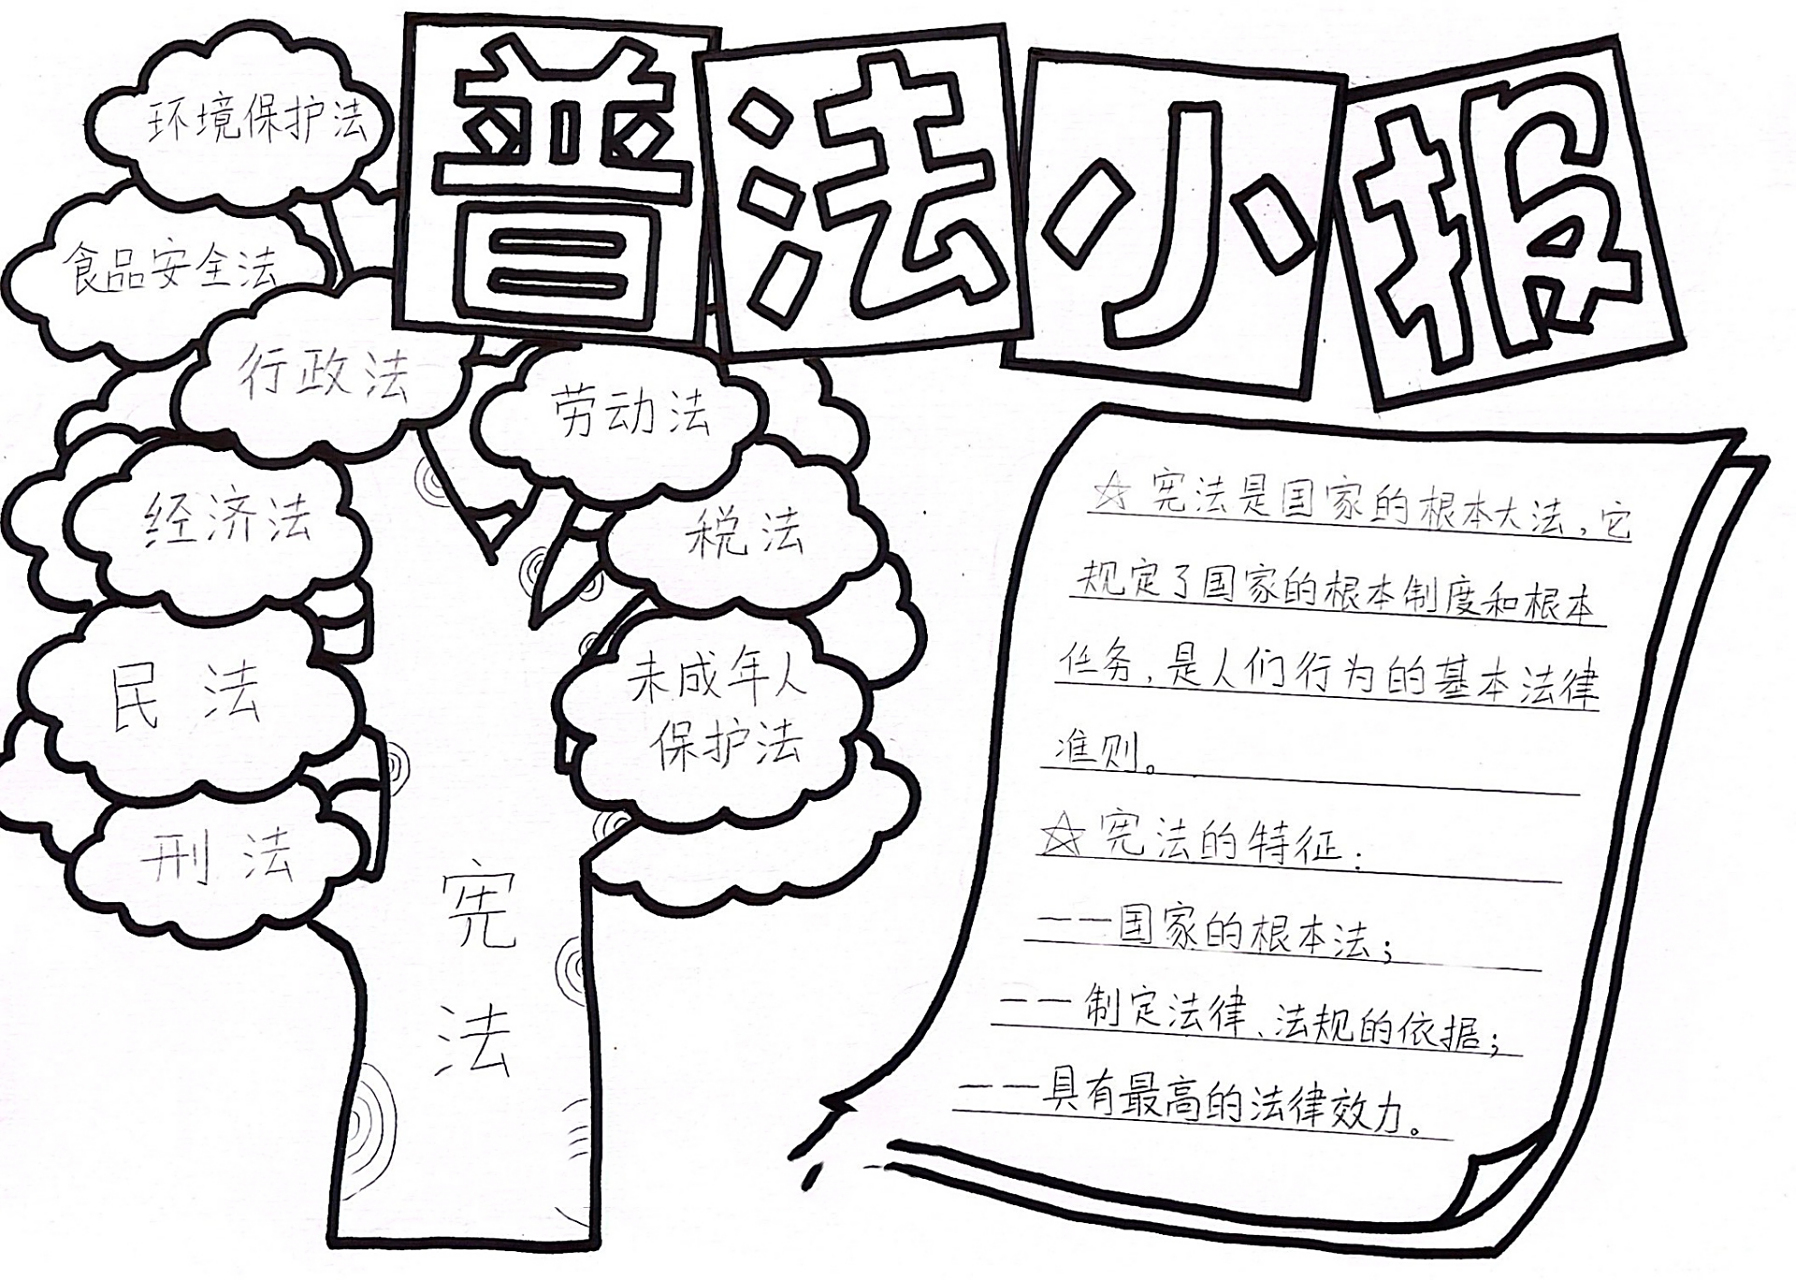 普法小报
环境保护法
食品安全法
行政法
劳动法
经济法
税法
民法
未成年人
保护法
刑法
宪
法
☆宪法是国家的根本大法，它
规定了国家的根本制度和根本
任务，是人们行为的基本法律
准则。
☆宪法的特征：
——国家的根本法；
——制定法律、法规的依据；
——具有最高的法律效力。